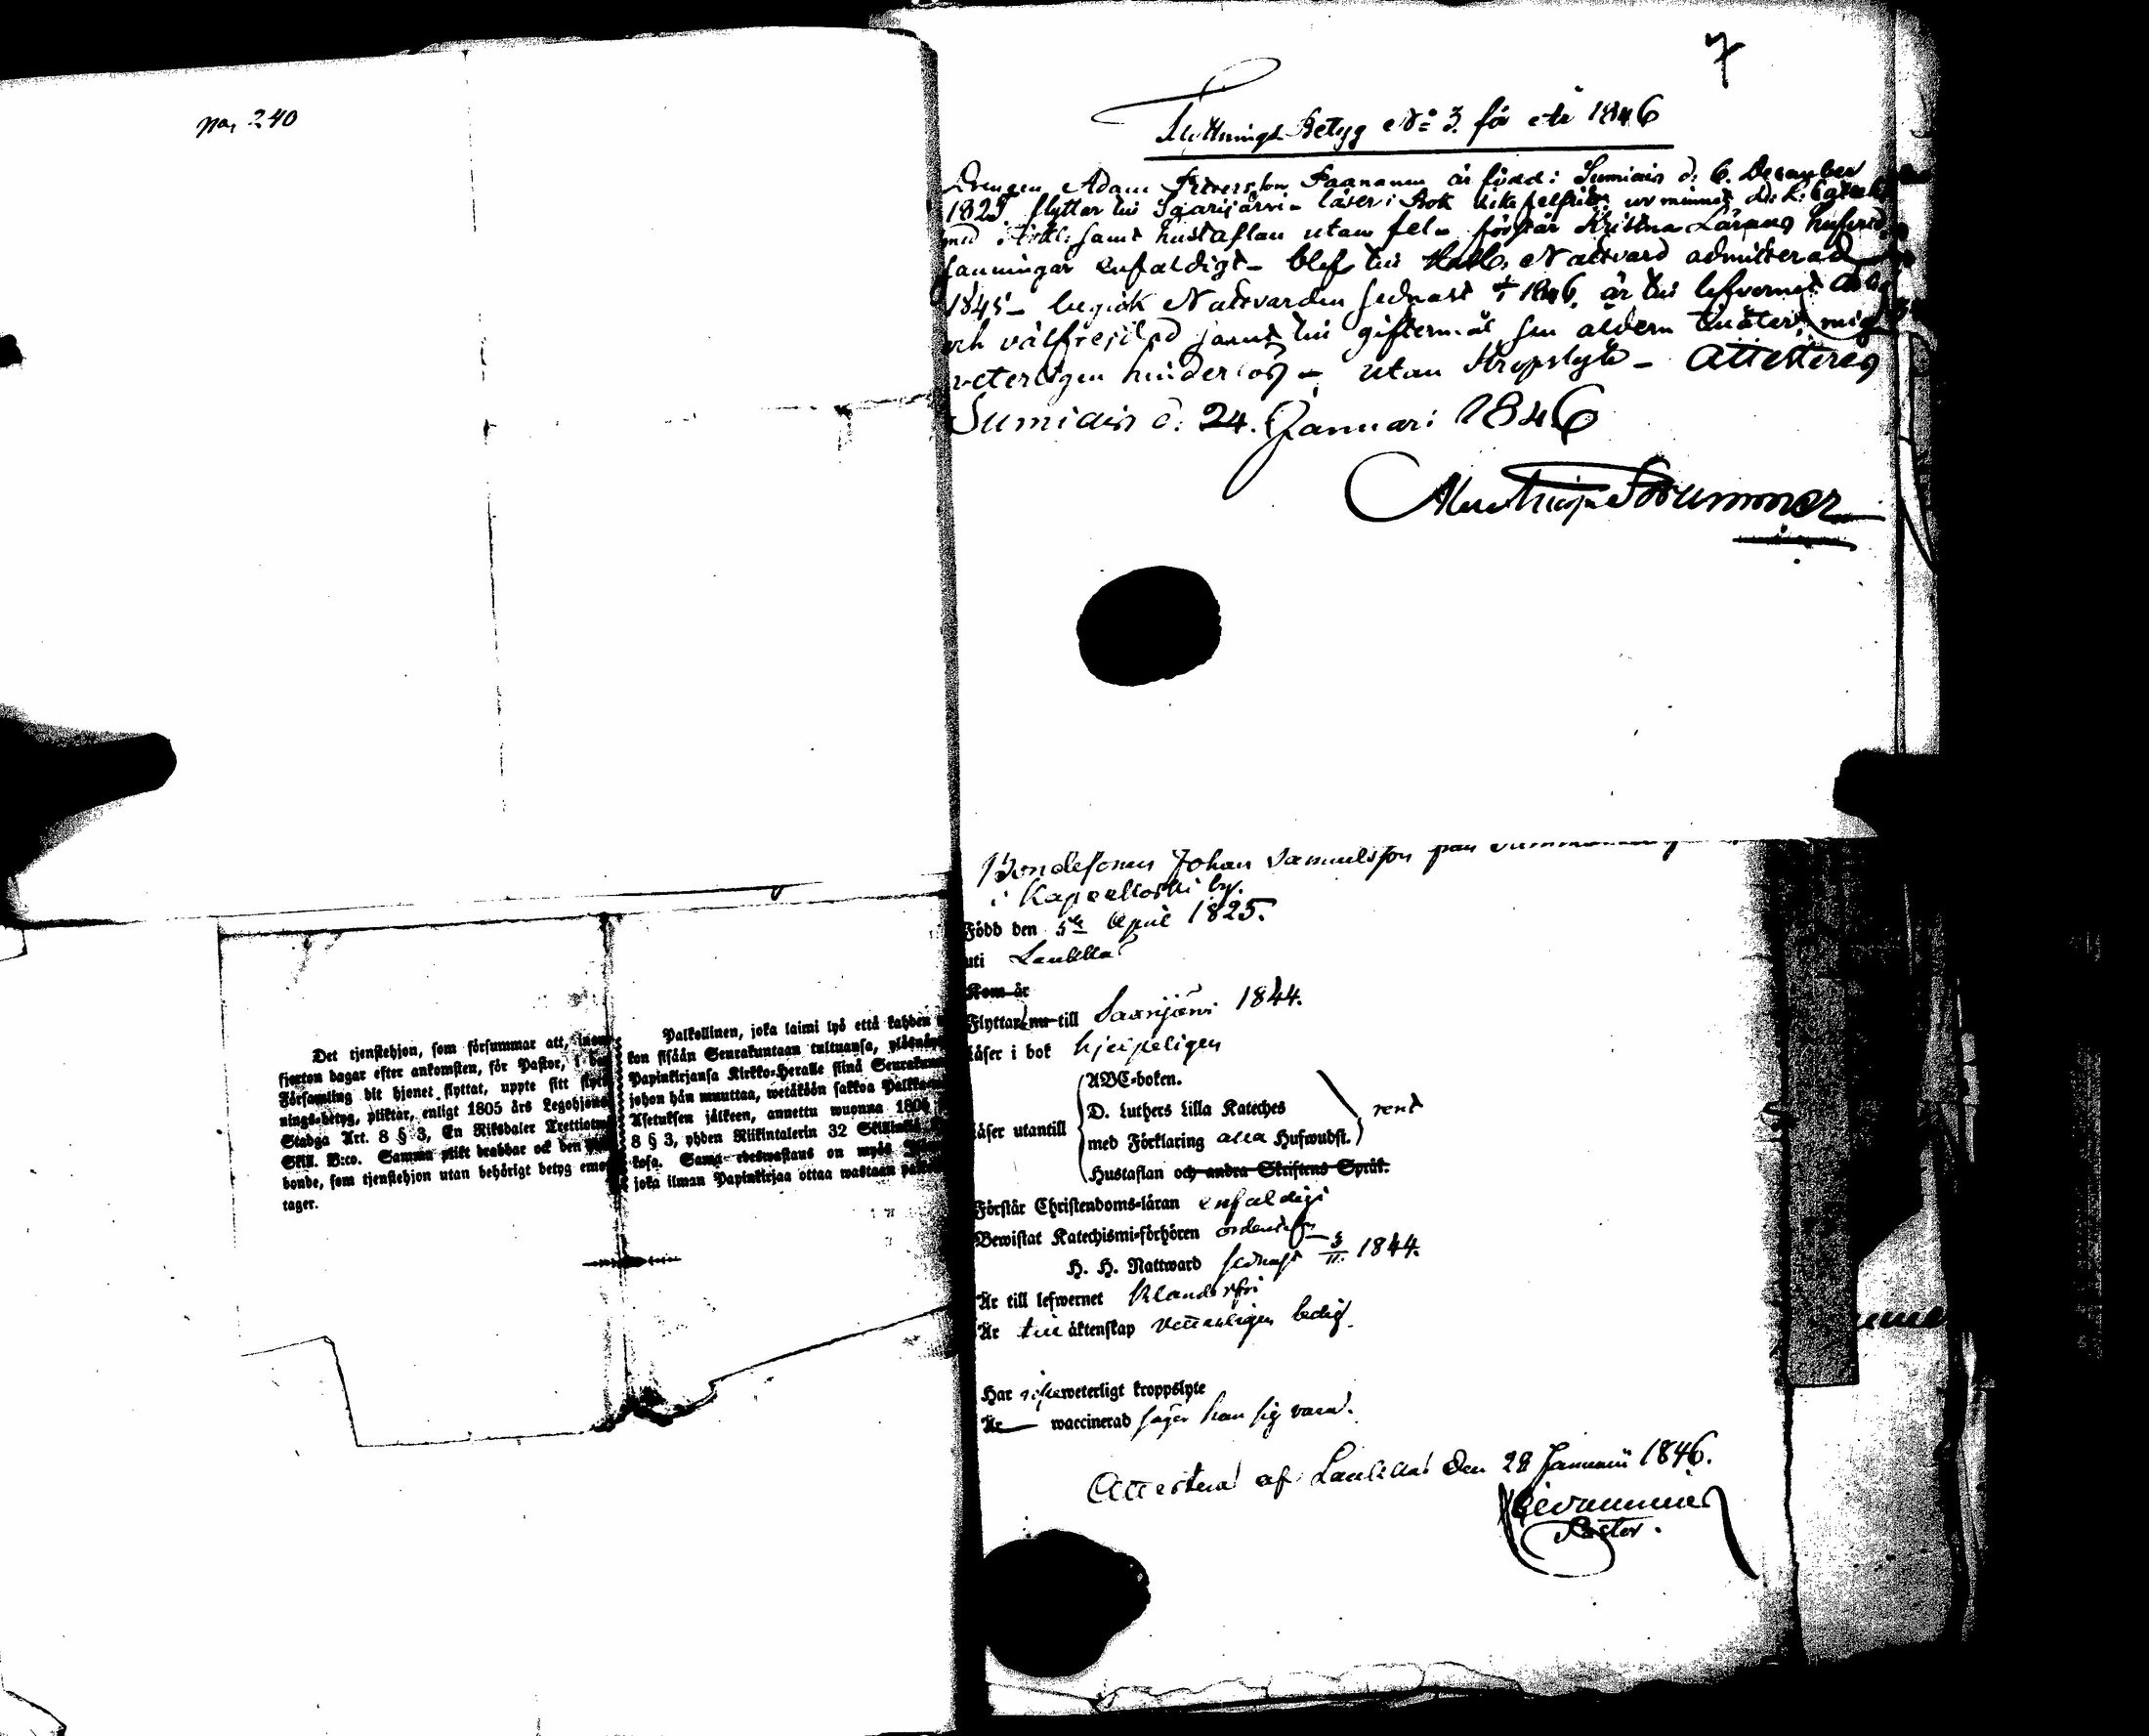 pag 240
7
Flyttnings Betyg No 3 för år 1846
Drengen Adam Petersson Paananen är född i Sumiais d. 6. December
1825 flyttar till Saarijärvi - läser i Bok icke felfritt ur minnet D. L. Cateches
med förkl: samt hustaflan utan fel - förstår Kristna Lärans hufvud
sanningar enfaldigt - blef till Nattvard admitterad
1845 - begick Nattvarden sednast 1846. är till lefvernet
och välfrejdad samt till giftermål
veterligen hinderlös - utan Kropslyte - Attesteras
Sumiais d. 24. Januari 1846
Bondesonen Johan Samuelsson från
i Kapeellkoski by.
Född den 5te April 1825.
uti Laukkas
Kom år
Flyttar nu till Saarijärvi 1844.
Läser i bok hjelpeligen
Läser utantill
ABC-boken.
D. Luthers Lilla Kateches
med Förklaring alla Hufwudst.
rent
Hustaflan och andra Skriftens Språk.
Förstår Christendoms-läran enfaldigt
Bewistat Katechismi-förhören ordentligen
H. H. Nattward sednast 3/11 1844.
Är till lefwernet klanderfri
Är till äktenskap vetterligen ledig.
Har icke weterligt kroppslyte
Är waccinerad säger han sig vara.
Attesterad af Laukkas den 28 Januarii 1846.
Pastor.
Det tjenstehjon, som försummar att, inom
fjorton dagar efter ankomsten, för Pastor, i den
Församling dit hjonet flyttat, uppte sitt flytt
nings-betyg, pliktar, enligt 1805 års Legohjons
Stadga Art. 8 § 3, En Riksdaler Trettiotwå
Skill. B:co. Samma plikt drabbar ock den
bonde, som tjenstehjon utan behörigt betyg emot
tager.
Palkollinen, joka laimi lyö että kahden
kon sisään Seurakuntaan tultuansa, ylösnäyt
Papinkirjansa Kirkko-Heralle siinä Seurakun
johon hän muuttaa, wetäköön sakkoa Palkka
Asetuksen jälkeen, annettu wuonna 1805
8 § 3, yhden Riikintalerin 32 Skillinkiä
kosa. Sama edeswastaus on myös
joka ilman Papinkirjaa ottaa wastaan palkol